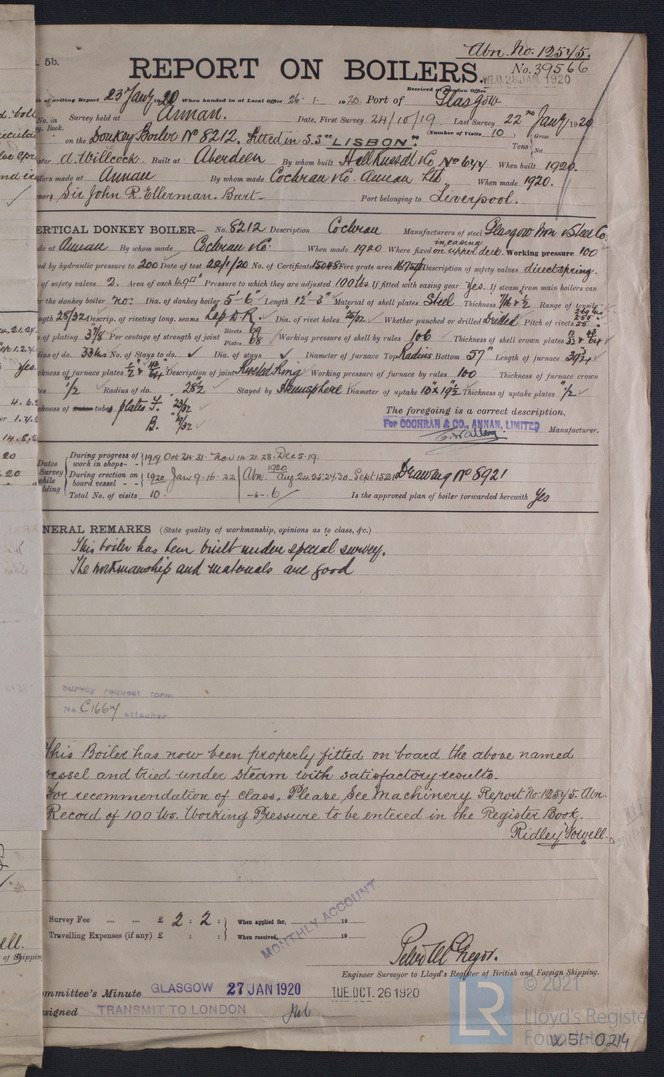 5b.
Abn. No. 12545.
REPORT ON BOILERS.
No. 39566
WED. 28 JAN. 1920
of writing Report 23 Jany 20 When handed in at Local Office 26. 1. 1920. Port of Glasgow
No. in Survey held at Annan. Date, First Survey 24/10/19 Last Survey 22nd Jany 1920
Book. (Number of Visits 10 Gross
on the Donkey Boiler No 8212, fitted in S.S "LISBON". Tons Net
A. Willcock. Built at Aberdeen By whom built Hall Russell & Co No 644 When built 1920.
made at Annan By whom made Cochran & Co. Annan Ltd. When made 1920.
Sir John R. Ellerman. Bart- Port belonging to Liverpool.
ERTICAL DONKEY BOILER— No. 8212 Description Cochran Manufacturers of steel Glasgow Iron & Steel Co.
de at Annan By whom made Cochran & Co. When made 1920 Where fixed in casing on upper deck. Working pressure 100
ed by hydraulic pressure to 200 Date of test 22/1/20 No. of Certificate 15048 Fire grate area Description of safety valves direct spring.
of safety valves 2. Area of each Pressure to which they are adjusted 100 lbs. If fitted with easing gear Yes. If steam from main boilers can
the donkey boiler no. Dia. of donkey boiler 5'-6" Length 12'-5" Material of shell plates Steel Thickness Range of tensile
28/32 Descrip. of riveting long. seams Lap D.R. Dia. of rivet holes 25/32 Whether punched or drilled Drilled Pitch of rivets
of plating 3 7/8 Per centage of strength of joint Rivets 69 Plates 68 Working pressure of shell by rules 106 Thickness of shell crown plates
Radius of do. No. of Stays to do. ✓ Dia. of stays ✓ Diameter of furnace Top Radius Bottom 57" Length of furnace
ickness of furnace plates Description of joint Riveted Ring Working pressure of furnace by rules 100 Thickness of furnace crown
1/2 Radius of do. 28 1/2 Stayed by Hemisphere Diameter of uptake Thickness of uptake plates 1/2
kness of tube plates F. 23/32
B.
The foregoing is a correct description.
For COCHRAN & CO., ANNAN, LIMITED Manufacturer.
Dates Survey while building
During progress of work in shops - - 1919 Oct 24. 31. Nov 14. 21. 28. Dec 5. 19.
During erection on board vessel - - 1920 Jan 9. 16. 22 Abn. 1920 Aug 24. 25. 27. 30. Sept 15. 21
Total No. of visits 10. 6
Drawing No 8921
Is the approved plan of boiler forwarded herewith Yes
NERAL REMARKS (State quality of workmanship, opinions as to class, &c.)
This boiler has been built under special survey.
The workmanship and materials are good
Survey request form
No. C1667 attached
This Boiler has now been properly fitted on board the above named
vessel and tried under steam with satisfactory results.
For recommendation of class, Please see Machinery Report No. 12545. Abn.
Record of 100 lbs. Working Pressure to be entered in the Register Book.
Survey Fee ... ... £ 2 : 2 : When applied for, 19
Travelling Expenses (if any) £ : : When received, 19
MONTHLY ACCOUNT
Engineer Surveyor to Lloyd's Register of British and Foreign Shipping.
ommittee's Minute GLASGOW 27 JAN 1920 TUE. OCT. 26 1920
ssigned TRANSMIT TO LONDON
LR
© 2021
Lloyd's Register
Foundation